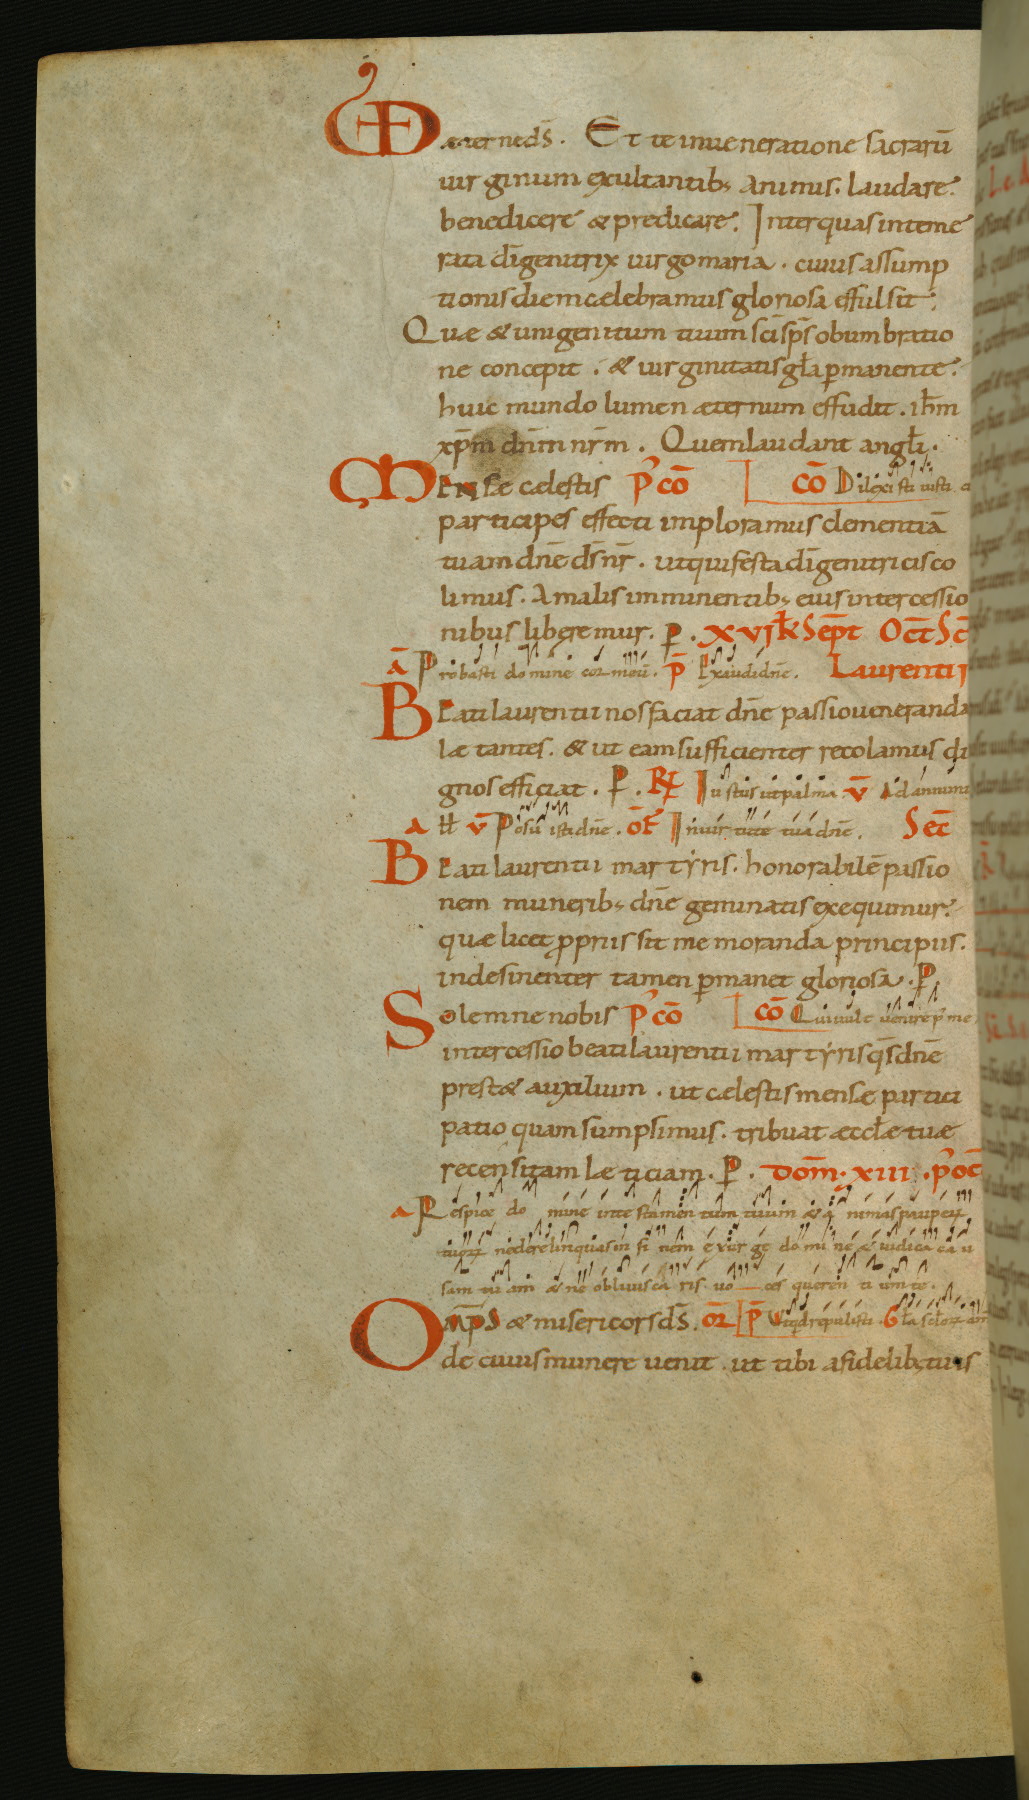 VD æterne ds̄. Et te in ueneratione sacrarū
uirginum exultantib; animis. laudare.
benedicere & predicare. Inter quas inteme
rata dī genitrix uirgo maria. cuius assump
tionis diem cælebramus gloriosa effulsit.
Quæ & unigenitum tuum sc̄i sp̄s obumbratio
ne concepit. & uirginitatis gl̄a p̄manente.
huic mundo lumen æternum effudit. ih̄m
xp̄m dn̄m nr̄m. Quem laudant angl̄i.
Mense cælestis P' cō cō Dilexisti iusti
participes effecti imploramus clementiā
tuam dn̄e ds̄ nr̄. ut qui festa dī genitricis co
limus. A malis imminentib; eius intercessio
nibus liberemur. P. XVI kł Sep̄t Oc̄t Sc̄
ā Probasti domine cor meū. p̄ Exaudi dn̄e. Laurentii
Beati laurentii nos faciat dn̄e passio ueneranda
lætantes. & ut eam sufficienter recolamus di
gnos efficiat. P. R̄ Iustus ut palma v̄ Ad annunti
a ll v̄ Posuisti dn̄e. of̄ In uirtute tua dn̄e. Sec̄
Beati laurentii martyris. honorabilē passio
nem munerib; dn̄e geminatis exequimur.
quæ licet propriis sit memoranda principiis.
indesinenter tamen p̄manet gloriosa. P
Solemne nobis P' cō cō Qui uult uenire p' me
intercessio beati laurentii martyris q̄s dn̄e
prest& auxilium. ut cælestis mense partici
patio quam sumpsimus. tribuat æccl̄æ tuæ
recensitam læticiam. P. Dom̄. XIII. p' oc̄t
a Respice domine in testamentum tuum & animas pauperū
tuorū ne derelinquas in finem exurge domine & iudica cau
sam tuam & ne obliuiscaris uoces querentium te.
Omp̄s & misericors ds̄. or̄ p̄ Ut quid repulisti. Gl̄a
de cuius munere uenit. ut tibi a fidelib; tuis